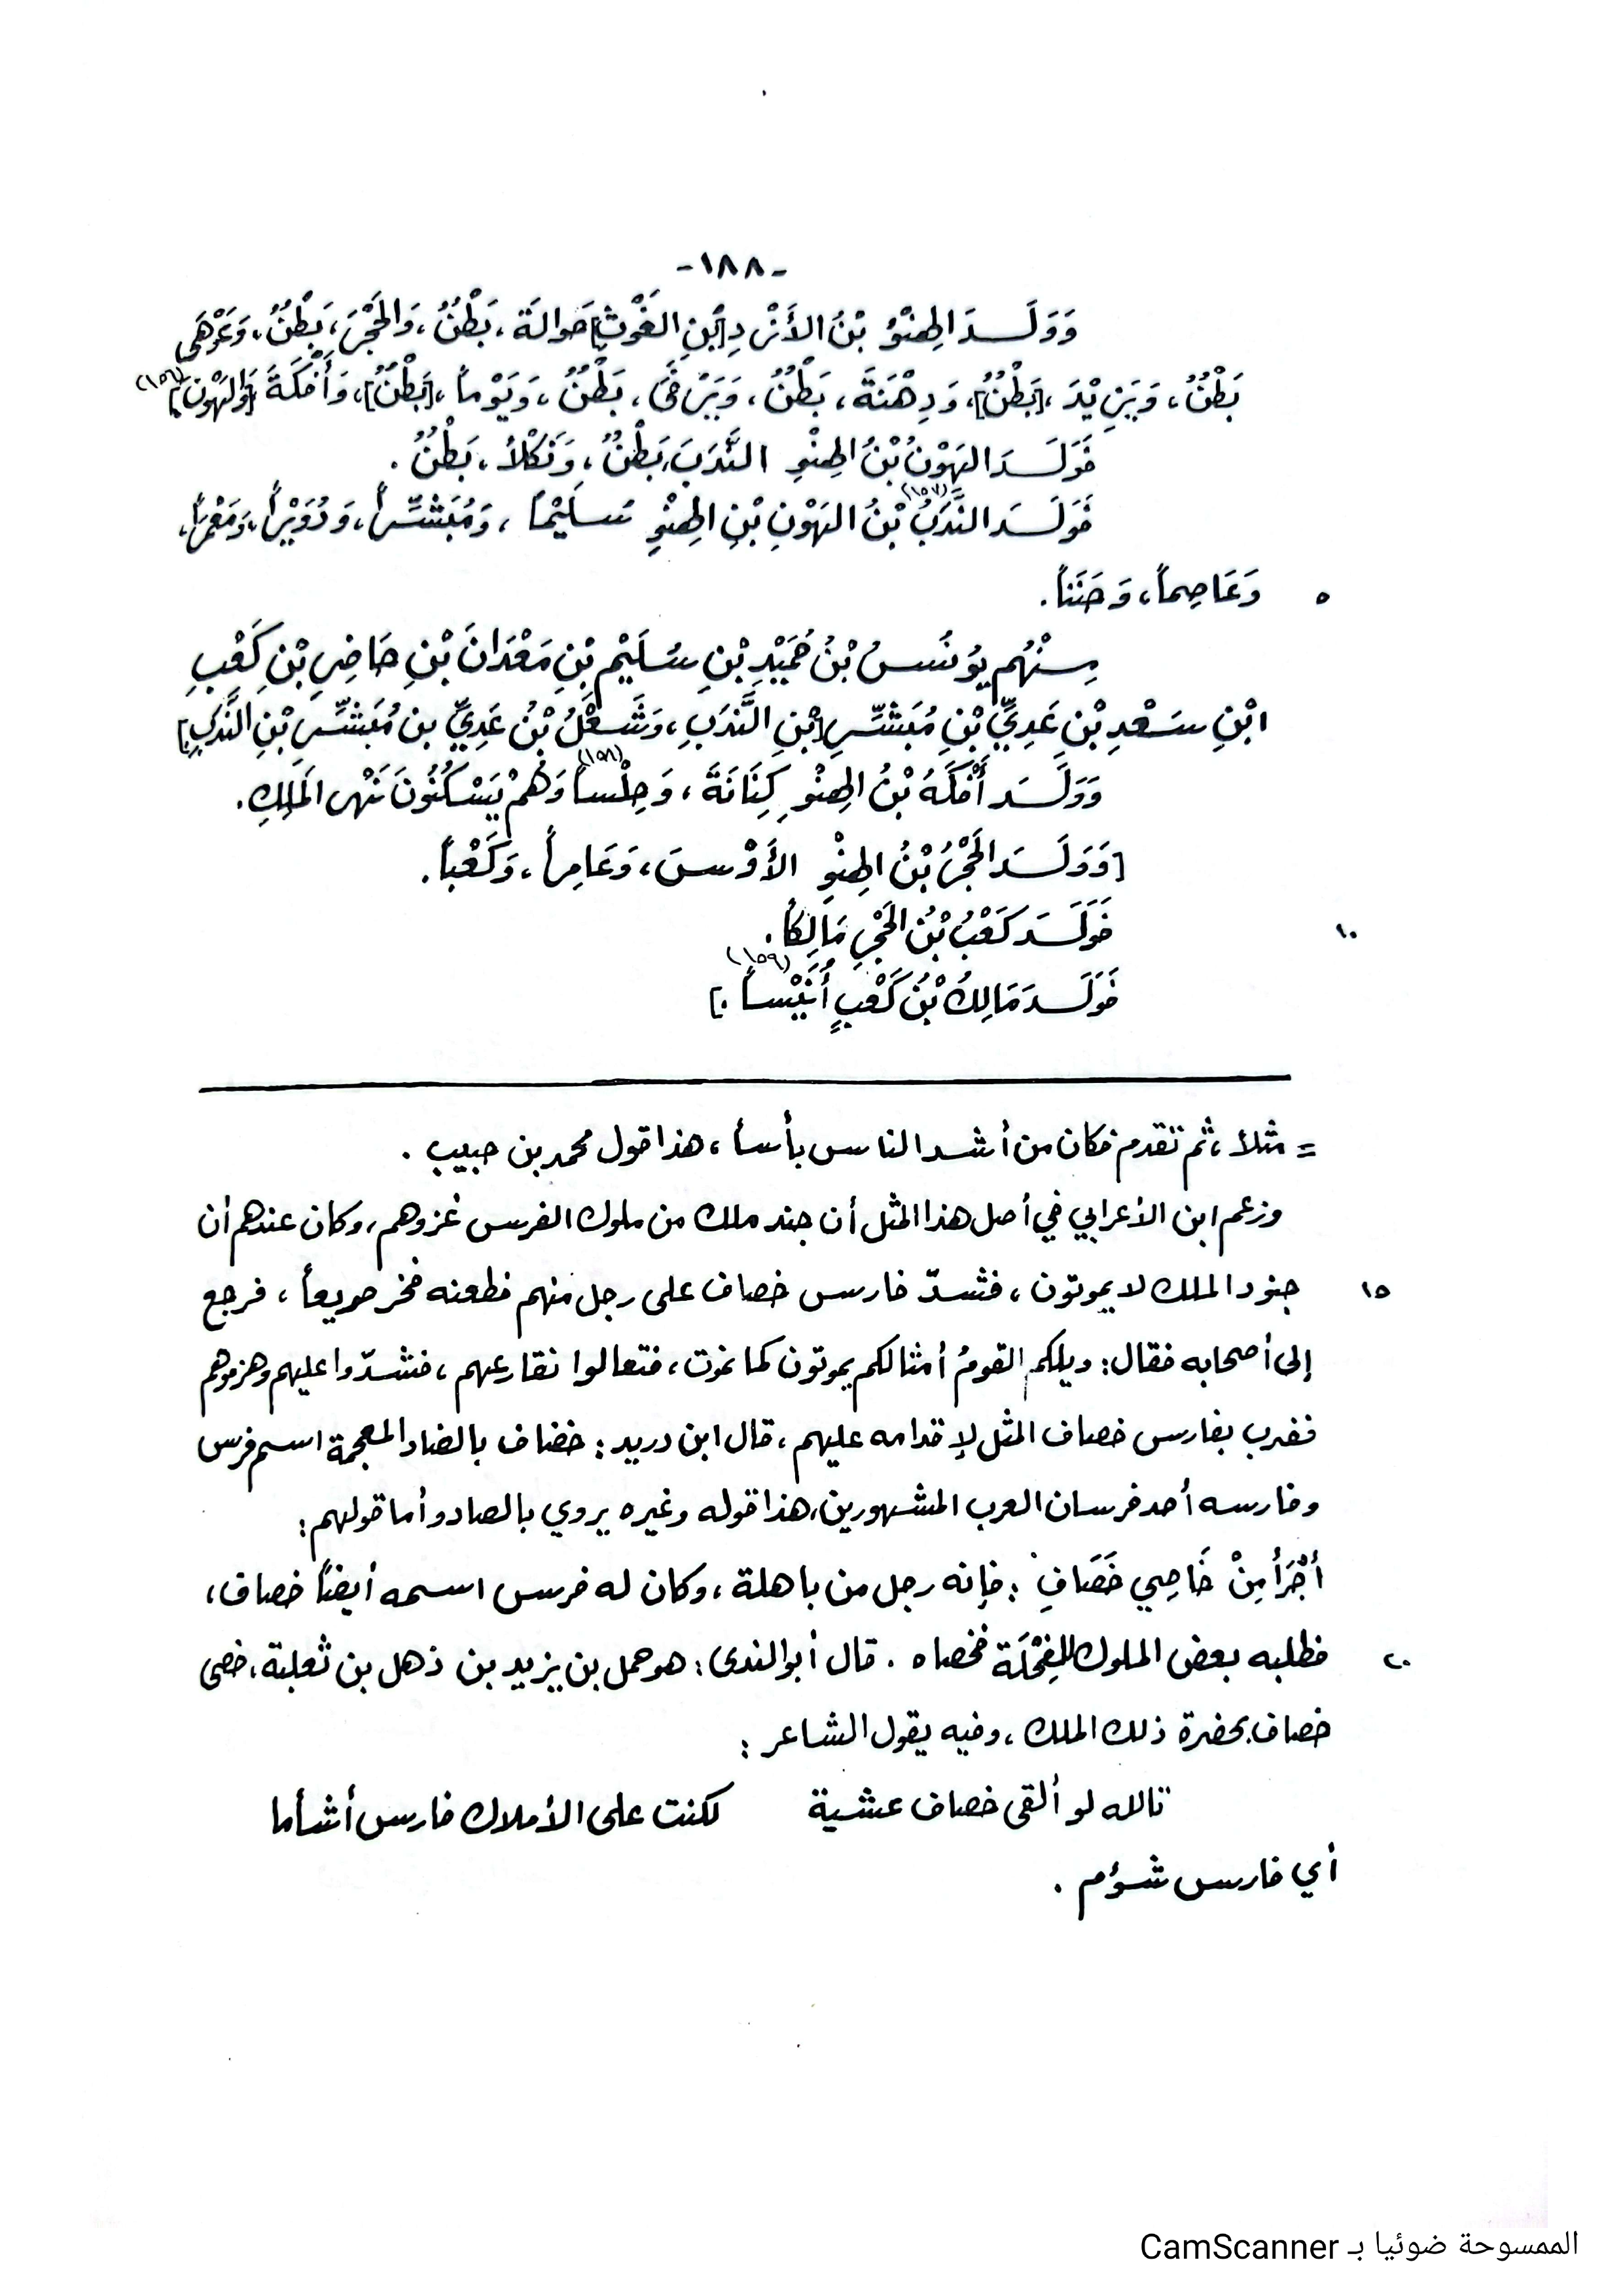 -١٨٨-
وَوَلَـــدَ الهِنْوُ بْنُ الأَزْدِ [بْنِ الغَوْثِ] حَوالَةَ ، بَطْنٌ ، وَالحَجْرَ ، بَطْنٌ ، وَعَوْهَى
بَطْنٌ ، وَيَزِيْدَ ، [بَطْنٌ] ، وَدِهْنَةَ ، بَطْنٌ ، وَيَرْفَى ، بَطْنٌ ، وَيَوْماً ، [بَطْنٌ] ، وَأَفْكَةَ [وَالهَوْنَ] (١٥٦)
فَوَلَـــدَ الهَوْنُ بْنُ الهِنْوِ النَّدَبَ بَطْنٌ ، وَنَكْلاً ، بَطْنٌ .
فَوَلَـــدَ النَّدَبُ (١٥٧) بْنُ الهَوْنِ بْنِ الهِنْوِ سُلَيْماً ، وَمُبَشِّراً ، وَدُوَيْراً ، وَمَعْمَراً ،
٥ وَعَاصِماً ، وَحَنَناً .
مِـنْهُم يُونُسُ بْنُ حُمَيْدِ بْنِ سُلَيْمِ بْنِ مَعْدَانَ بْنِ حَاضِرِ بْنِ كَعْبِ
ابْنِ سَعْدِ بْنِ عَدِيِّ بْنِ مُبَشِّرِ [بْنِ النَّدَبِ ، وَشَعْلُ بْنُ عَدِيِّ بن مُبَشِّرِ بْنِ النَّدَبِ]
وَوَلَـــدَ أَفْكَةُ بْنُ الهِنْوِ كِنَانَةَ ، وَحِلْساً (١٥٨) وَهُمْ يَسْكُنُونَ نَهْرَ المَلِكِ .
[وَوَلَـــدَ الحَجْرُ بْنُ الهِنْوِ الأَوْسَ ، وَعَامِراً ، وَكَعْباً .
١٠ فَوَلَـــدَ كَعْبُ بْنُ الحَجْرِ مَالِكاً .
فَوَلَـــدَ مَالِكُ بْنُ كَعْبٍ أُنَيْساً (١٥٩) .]
= مثلاً ، ثم تقدم فكان من أشد الناس بأساً ، هذا قول محمد بن حبيب .
وزعم ابن الأعرابي في أصل هذا المثل أن جند ملك من ملوك الفرس غزوهم ، وكان عندهم أن
١٥ جنود الملك لا يموتون ، فشدّ فارس خصاف على رجل منهم فطعنه فخر صريعاً ، فرجع
إلى أصحابه فقال : ويلكم القومُ أمثالكم يموتون كما نموت ، فتعالوا نقارعهم ، فشدّوا عليهم وهزموهم
فضرب بفارس خصاف المثل لإقدامه عليهم ، قال ابن دريد : خضاف بالضاد المعجمة اسم فرس
وفارسه أحد فرسان العرب المشهورين ، هذا قوله وغيره يروي بالصاد وأما قولهم :
أَجْرَأُ مِنْ خَاصِي خَصَافِ : فإنه رجل من باهلة ، وكان له فرس اسمه أيضاً خصاف ،
٢٠ فطلبه بعض الملوك للفِحْلَة فخصاه . قال أبو الندى : هو حمل بن يزيد بن ذهل بن ثعلبة ، خصى
خصاف بحضرة ذلك الملك ، وفيه يقول الشاعر :
تالله لو ألقى خصاف عشية لكنت على الأملاك فارس أشأما
أي فارس شؤم .
الممسوحة ضوئيا بـ CamScanner